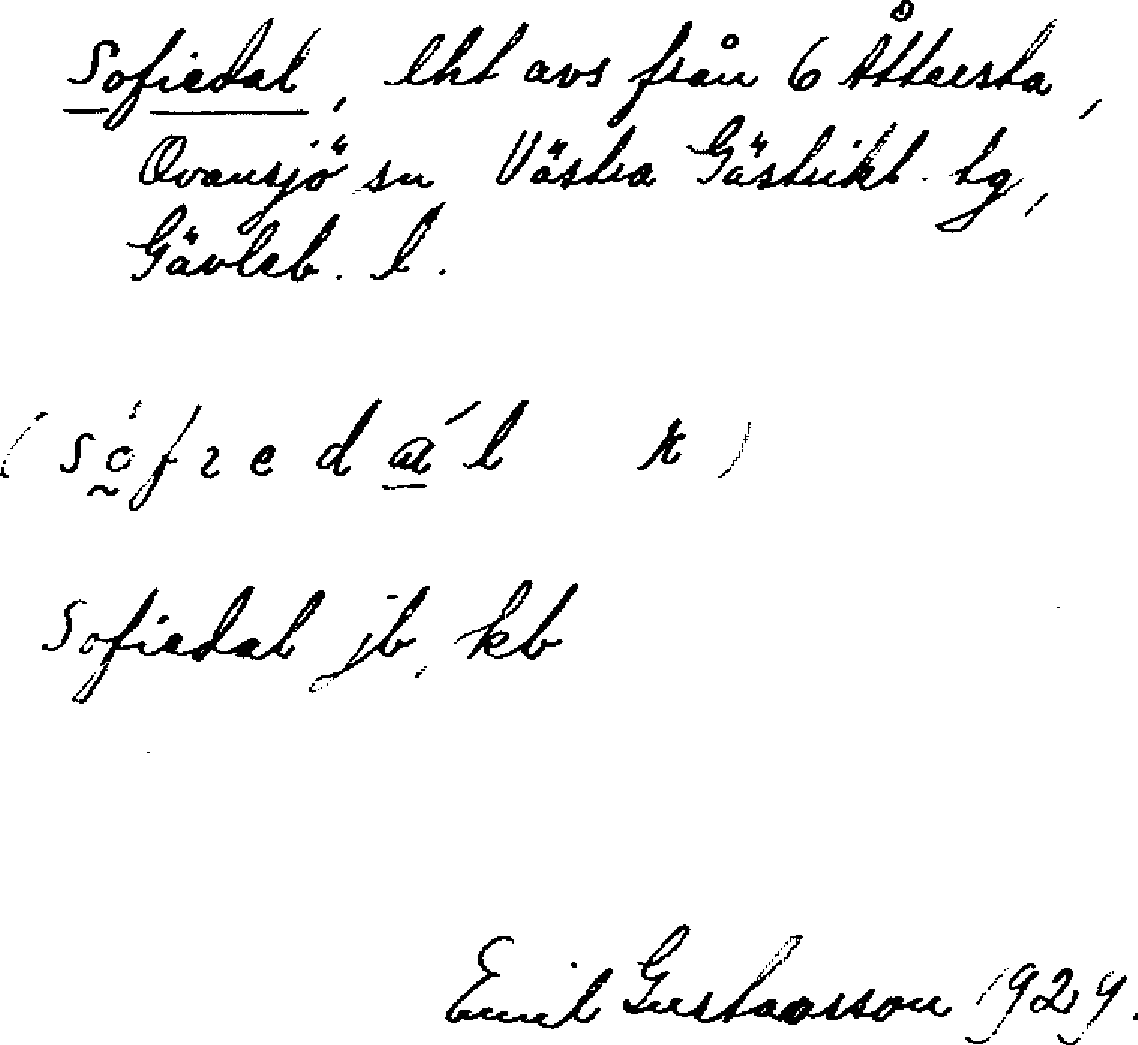 Sofiedal, lht avs från 6 Åttersta,
Ovansjö sn Västra Gästrikl. tg,
Gävleb. l.
Sofiedal jb, kb
Emil Gustavsson 1929.